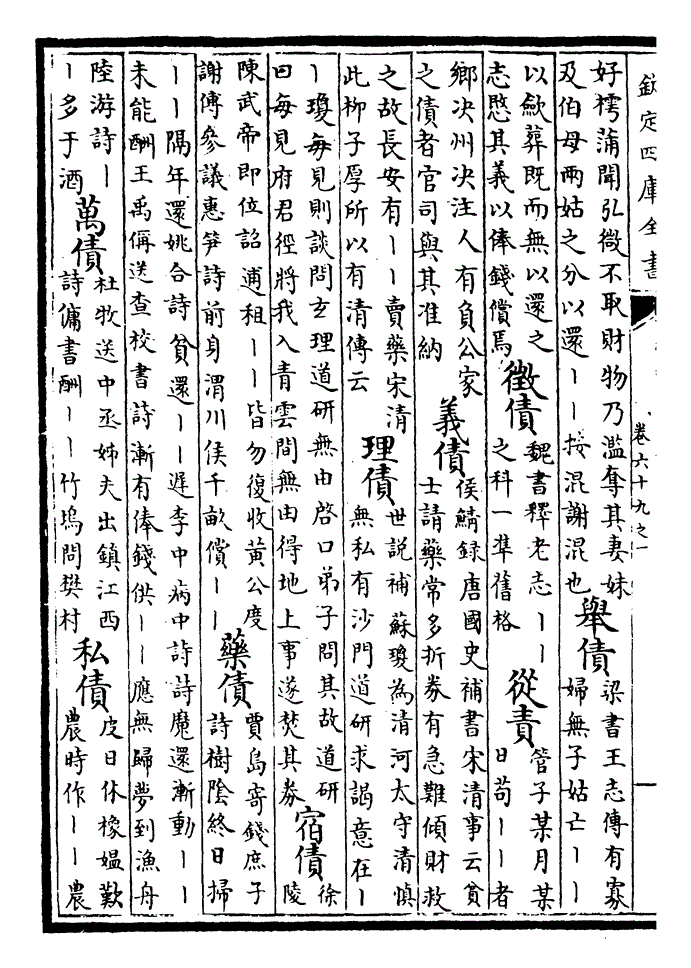 欽定四庫全書
卷六十九之一
好樗蒲聞弘微不取財物乃濫奪其妻妹
及伯母兩姑之分以還丨丨按混謝混也
舉債
梁書王志傳有寡
婦無子姑亡丨丨
以斂葬既而無以還之
志愍其義以俸錢償焉
徵債
魏書釋老志丨丨
之科一準舊格
從責
管子某月某
日苟丨丨者
鄉决州决注人有負公家
之債者官司與其准納
義債
侯鯖録唐國史補書宋清事云貧
士請藥常多折券有急難傾財救
之故長安有丨丨賣藥宋清
此柳子厚所以有清傳云
理債
世説補蘇瓊為清河太守清慎
無私有沙門道研求謁意在丨
丨瓊每見則談問玄理道研無由啓口弟子問其故道研
曰每見府君徑將我入青雲間無由得地上事遂焚其券
宿債
徐
陵
陳武帝即位詔逋租丨丨皆勿復收黄公度
謝傅參議惠笋詩前身渭川侯千畝償丨丨
藥債
賈島寄錢庶子
詩樹陰終日掃
丨丨隔年還姚合詩貧還丨丨遲李中病中詩詩魔還漸動丨丨
未能酬王禹偁送查校書詩漸有俸錢供丨丨應無歸夢到漁舟
陸游詩丨
丨多于酒
萬債
杜牧送中丞姊夫出鎮江西
詩傭書酬丨丨竹塢問樊村
私債
皮日休橡媪歎
農時作丨丨農